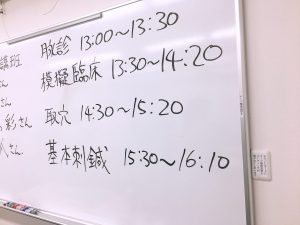 講班
さん
さん
彩さん
さん
脉診 13:00～13:30
模擬臨床 13:30～14:20
取穴 14:30～15:20
基本刺鍼 15:30～16:10